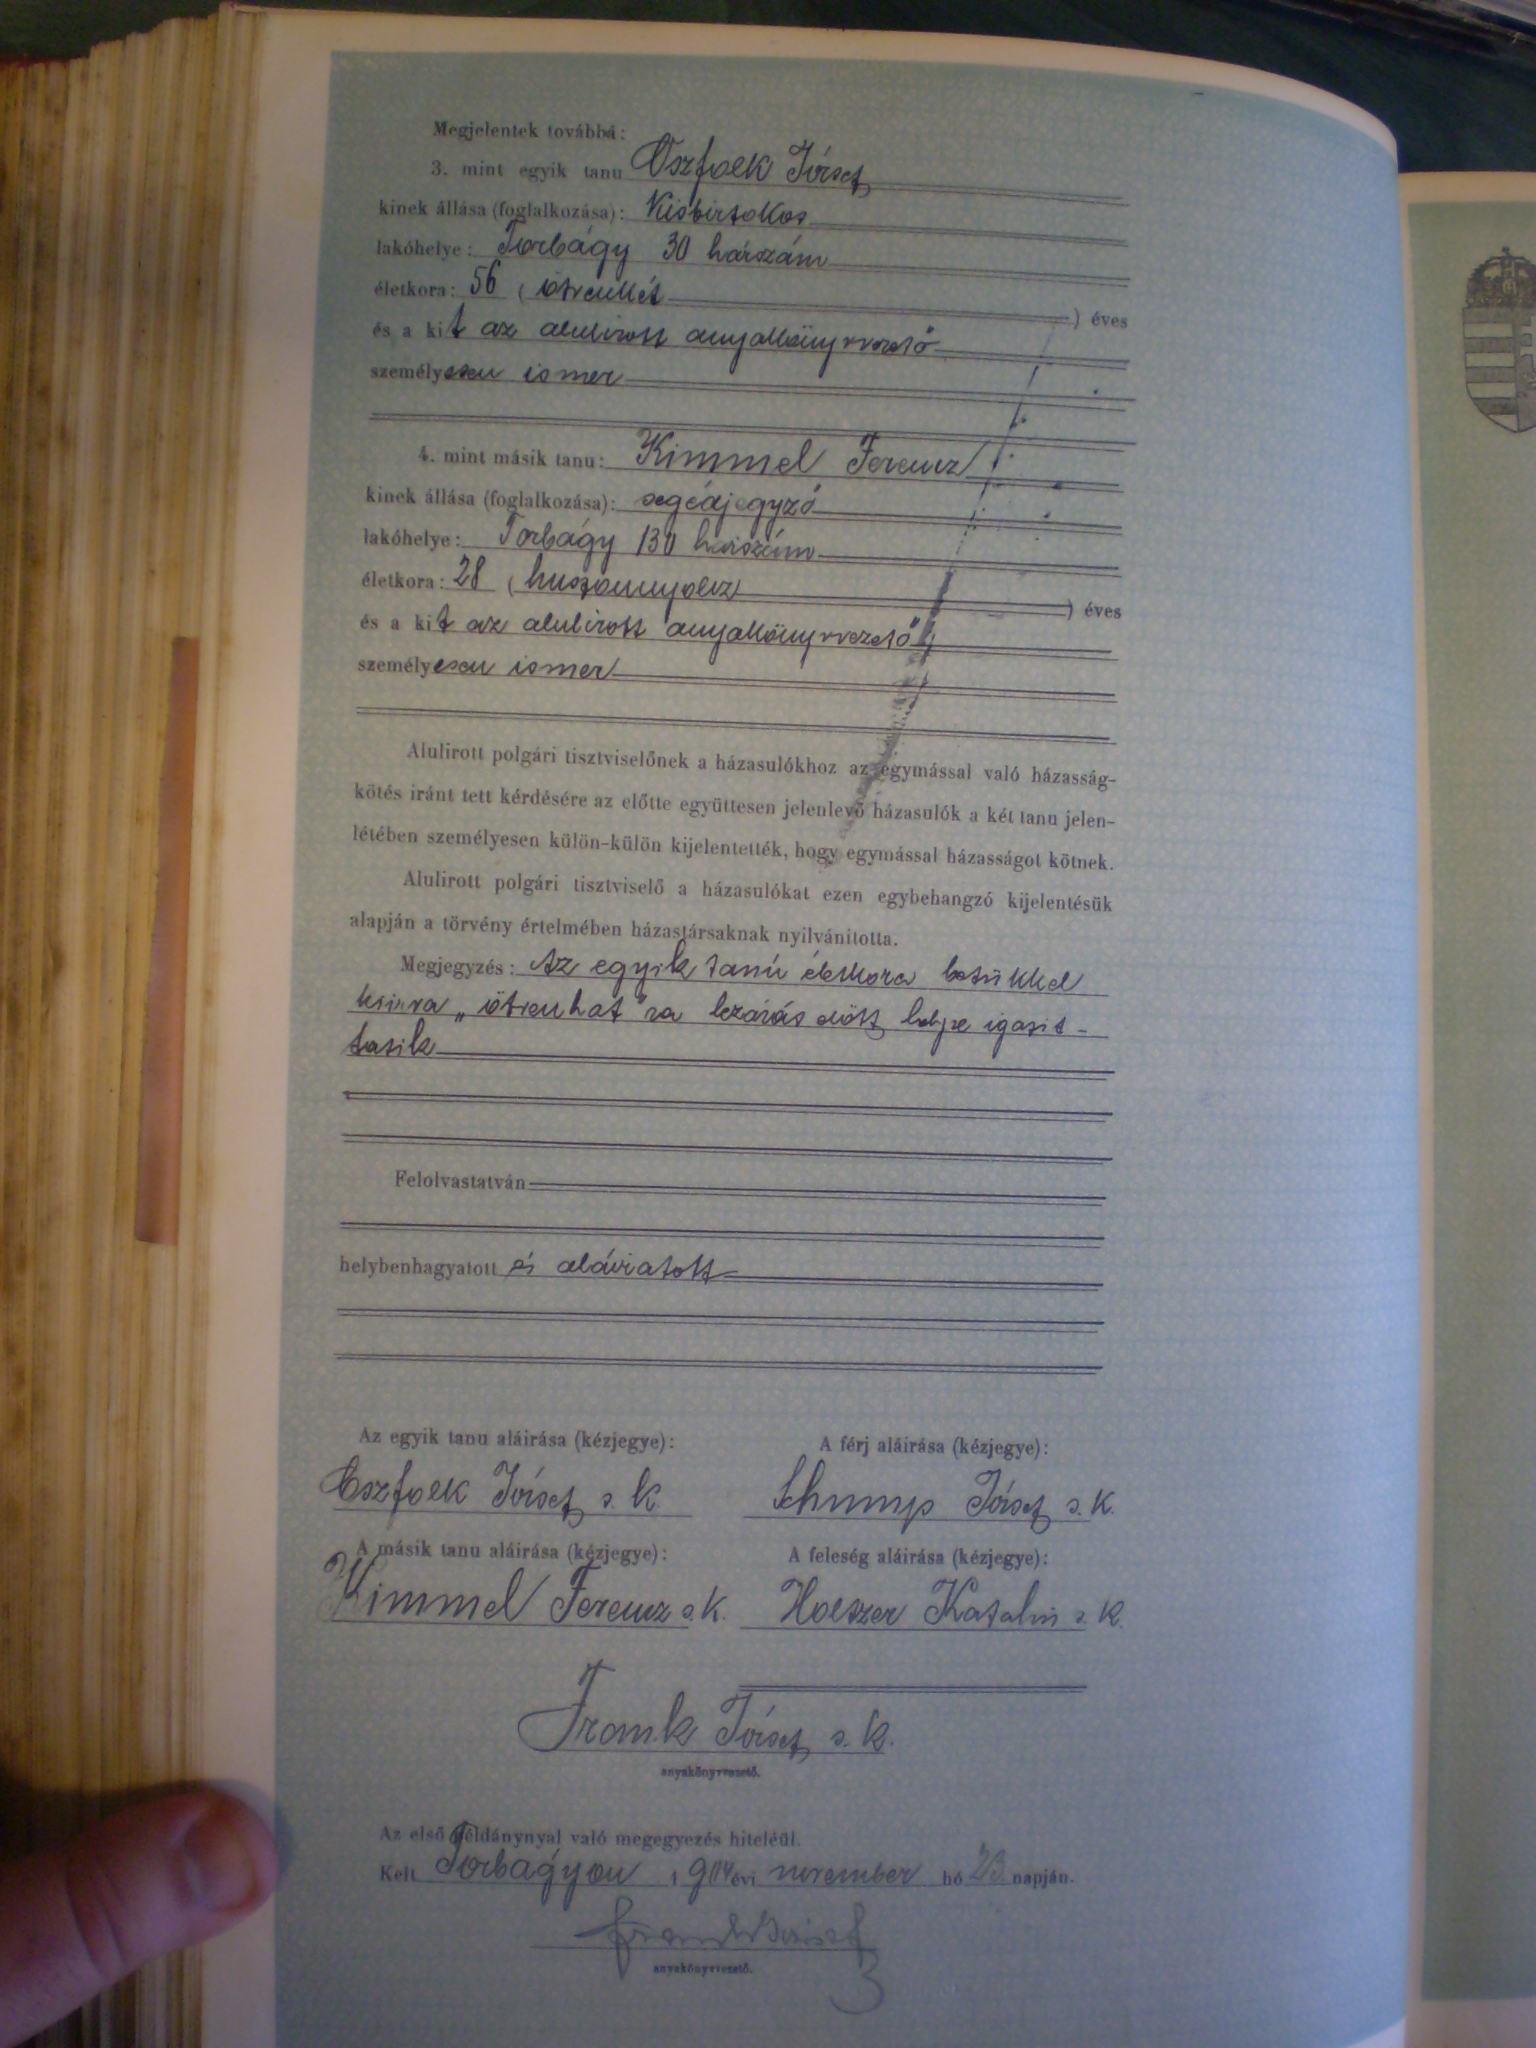 Megjelentek továbbá:
3. mint egyik tanu Oszfolk József
kinek állása (foglalkozása): kisbirtokos
lakóhelye: Torbágy 30 házszám
életkora: 56 (ötvenkét) éves
és a kit az alulirott anyakönyvvezető
személyesen ismer
4. mint másik tanu: Kimmel Ferencz
kinek állása (foglalkozása): segédjegyző
lakóhelye: Torbágy 130 házszám
életkora: 28 (huszonnyolcz) éves
és a kit az alulirott anyakönyvvezető
személyesen ismer
Alulirott polgári tisztviselőnek a házasulókhoz az egymással való házasság-
kötés iránt tett kérdésére az előtte együttesen jelenlevő házasulók a két tanu jelen-
létében személyesen külön-külön kijelentették, hogy egymással házasságot kötnek.
Alulirott polgári tisztviselő a házasulókat ezen egybehangzó kijelentésük
alapján a törvény értelmében házastársaknak nyilvánitotta.
Megjegyzés: Az egyik tanú életkora betükkel
kiirva „ötvenhat"ra lezárás előtt helyre igazit-
tatik
Felolvastatván
helybenhagyatott és aláiratott
Az egyik tanu aláirása (kézjegye): A férj aláirása (kézjegye):
József s. k. Schump József s. k.
A másik tanu aláirása (kézjegye): A feleség aláirása (kézjegye):
Kimmel Ferencz s. k. Holszer Katalin s. k.
Frank József s. k.
anyakönyvvezető.
Az első példánynyal való megegyezés hiteléül.
Kelt Torbágyon 1904 évi november hó 23 napján.
Frank József
anyakönyvvezető.